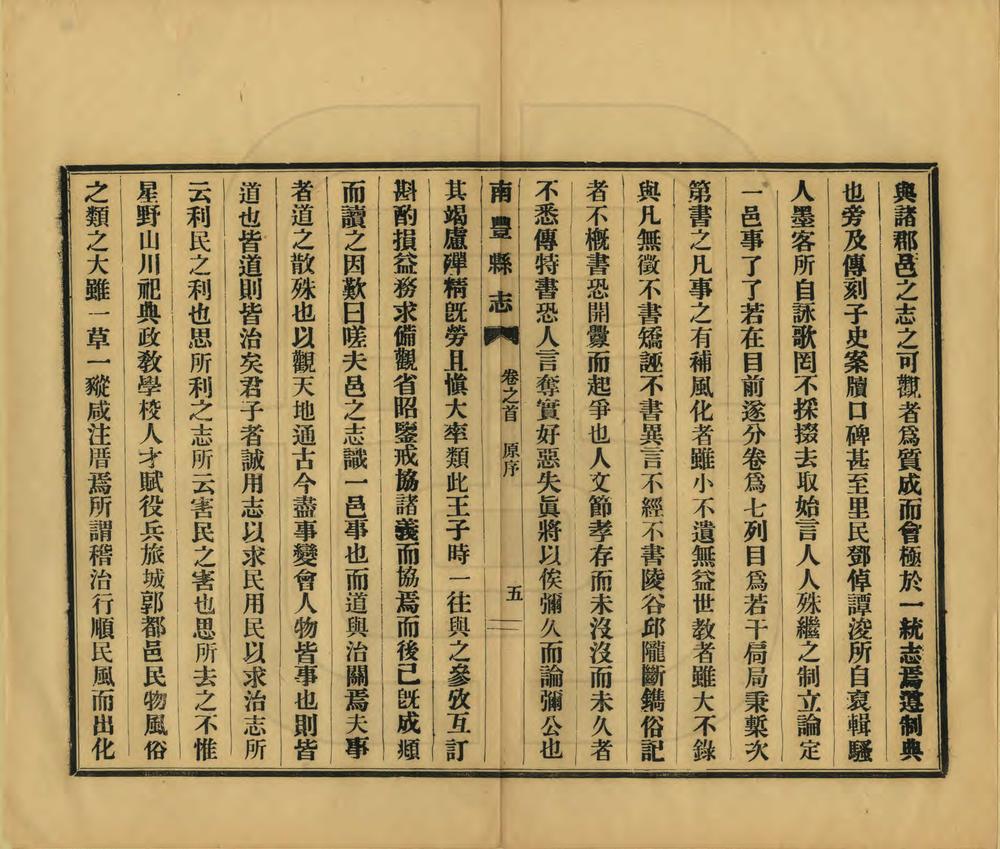 與諸郡邑之志之可觀者爲質成而會極於一統志焉遵制典
也旁及傳刻子史案牘口碑甚至里民鄧倬譚浚所自裒輯騷
人墨客所自詠歌罔不採掇去取始言人人殊繼之制立論定
一邑事了了若在目前遂分卷爲七列目爲若干扃局秉槧次
第書之凡事之有補風化者雖小不遺無益世教者雖大不錄
與凡無徵不書矯誣不書異言不經不書陵谷邱隴斷鐫俗記
者不槪書恐開釁而起爭也人文節孝存而未沒沒而未久者
不悉傳特書恐人言奪實好惡失眞將以俟彌久而論彌公也
南豐縣志 卷之首 原序 五
其竭慮殫精旣勞且愼大率類此王子時一往與之叅攷互訂
斟酌損益務求備觀省昭鑒戒協諸義而協焉而後已旣成頫
而讀之因歎曰嗟夫邑之志識一邑事也而道與治關焉夫事
者道之散殊也以觀天地通古今盡事變會人物皆事也則皆
道也皆道則皆治矣君子者誠用志以求民用民以求治志所
云利民之利也思所利之志所云害民之害也思所去之不惟
星野山川祀典政教學校人才賦役兵旅城郭都邑民物風俗
之類之大雖一草一豵咸注厝焉所謂稽治行順民風而出化